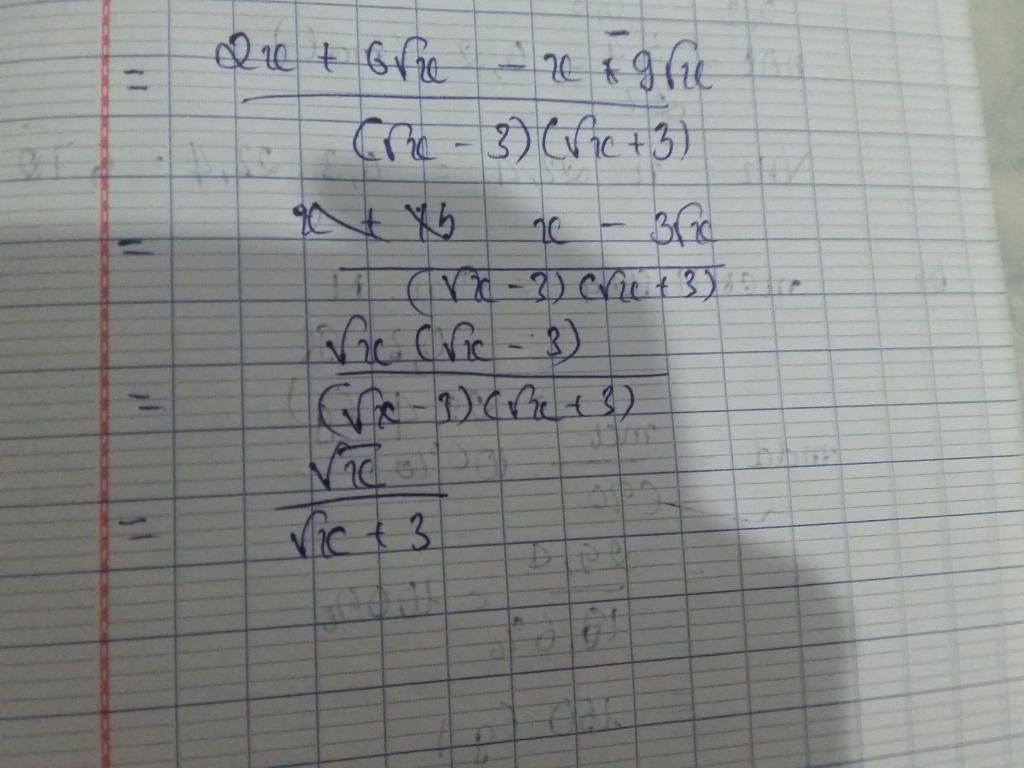 = \frac{2x + 6\sqrt{x} - x - 9\sqrt{x}}{(\sqrt{x} - 3)(\sqrt{x} + 3)}
= \frac{x - 3\sqrt{x}}{(\sqrt{x} - 3)(\sqrt{x} + 3)}
= \frac{\sqrt{x}(\sqrt{x} - 3)}{(\sqrt{x} - 3)(\sqrt{x} + 3)}
= \frac{\sqrt{x}}{\sqrt{x} + 3}